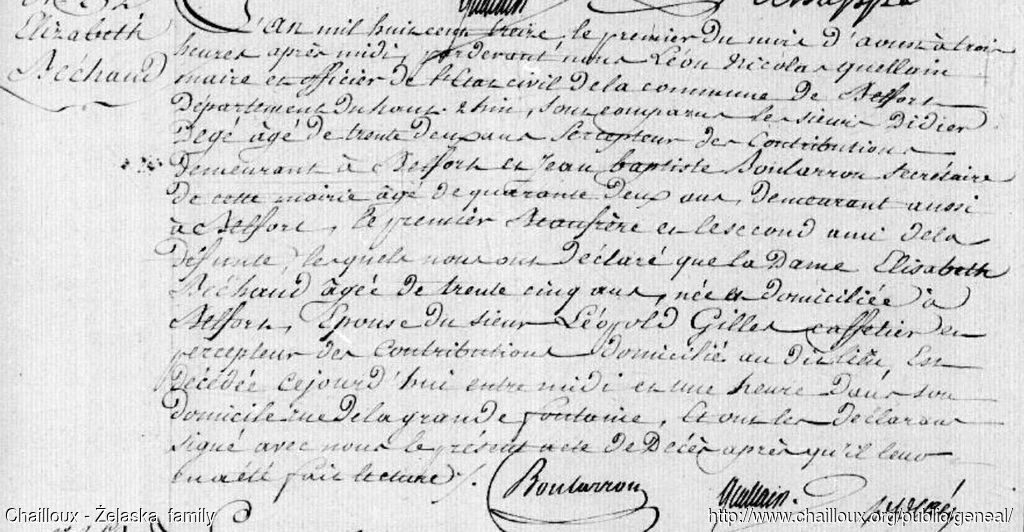 Quellain
Elizabeth
Béchaud
L'An mil huit cent treize, le premier du mois d'aoust à trois
heures après midi, pardevant nous Léon Nicolas quellain
maire et officier de l'Etat civil de la commune de Belfort
Département du haut-rhin, sont comparus les sieurs Didier
Degé âgé de trente deux ans percepteur des Contributions
Demeurant à Belfort et Jean baptiste Boularron Secrétaire
de cette mairie âgé de quarante deux ans, demeurant aussi
à Belfort, le premier Beaufrère et le second ami dela
défunte, lesquels nous ont Déclaré que la Dame Elisabeth
Béchaud âgée de trente cinq ans, née et domiciliée à
Belfort, Epouse du sieur Léopold Gilles caffetier et
percepteur des Contributions domicilié au dit lieu, Est
Décédée cejourd'hui entre midi et une heure Dans son
domicile rue dela grande fontaine, Et ont les Déclarans
signé avec nous le présent acte de Décès après qu'il leur
en a été fait lecture ./.
Boularron Quellain.
Chailloux - Želaska family http://www.chailloux.org/ouditg/geneal/